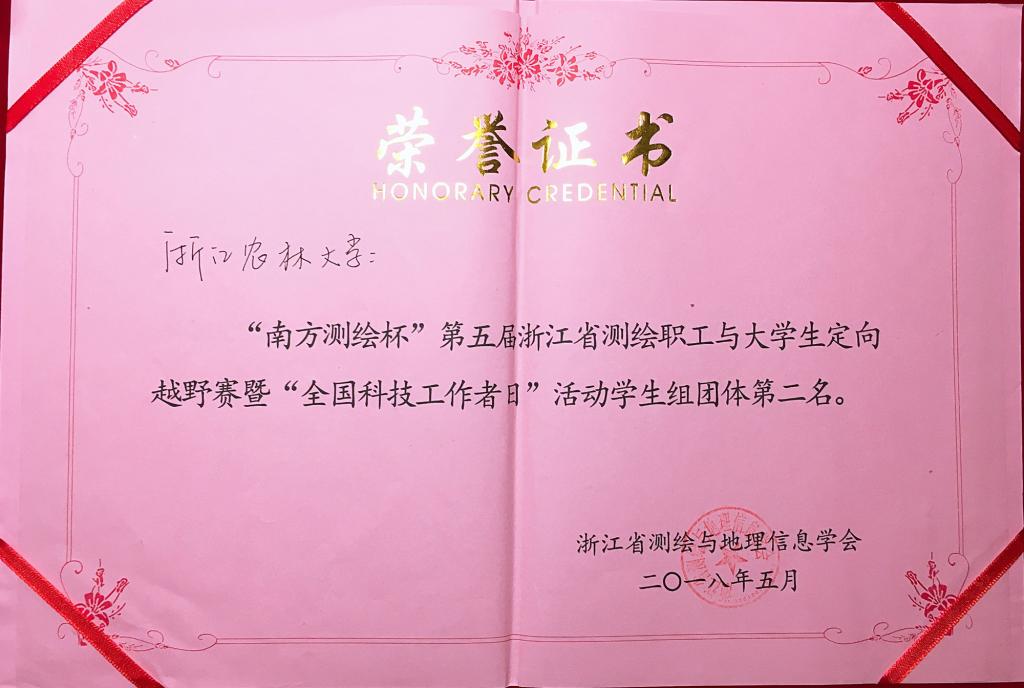 荣誉证书
HONORARY CREDENTIAL
浙江农林大学：
“南方测绘杯”第五届浙江省测绘职工与大学生定向
越野赛暨“全国科技工作者日”活动学生组团体第二名。
浙江省测绘与地理信息学会
二〇一八年五月